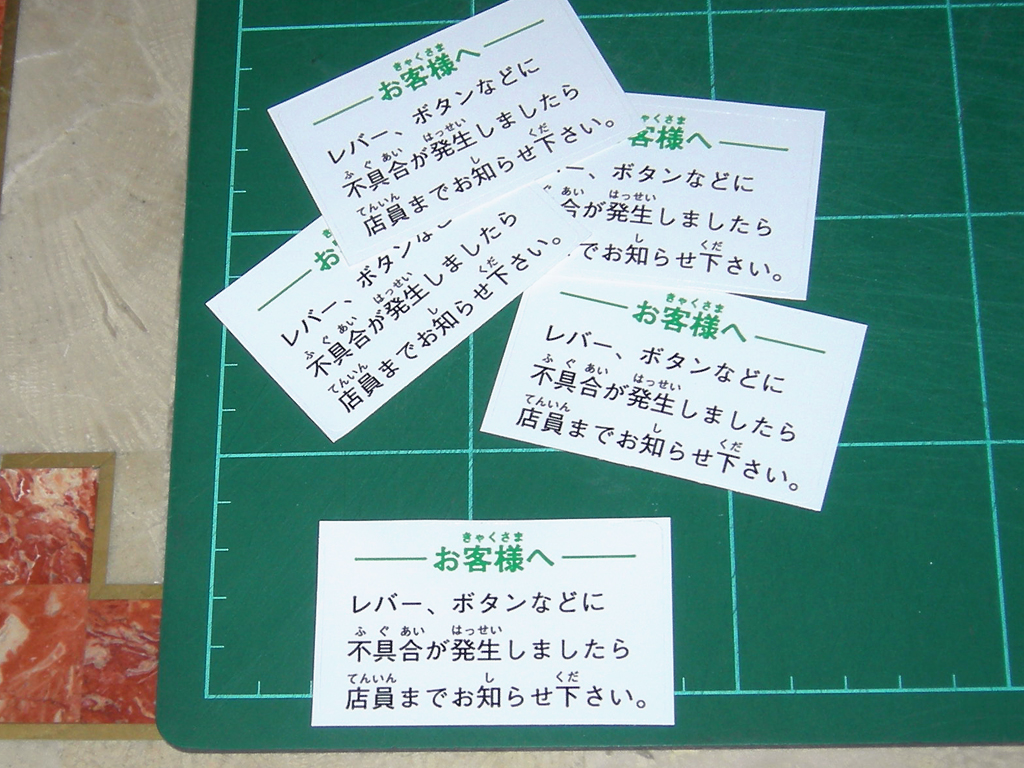 きゃくさま
お客様へ
レバー、ボタンなどに
ふぐあい はっせい
不具合が発生しましたら
てんいん し くだ
店員までお知らせ下さい。
ゃくさま
客様へ
ー、ボタンなどに
あい はっせい
合が発生しましたら
し くだ
でお知らせ下さい。
お
レバー、ボタンなど
ふぐあい はっせい
不具合が発生しましたら
てんいん し くだ
店員までお知らせ下さい。
きゃくさま
お客様へ
レバー、ボタンなどに
ふぐあい はっせい
不具合が発生しましたら
てんいん し くだ
店員までお知らせ下さい。
きゃくさま
お客様へ
レバー、ボタンなどに
ふぐあい はっせい
不具合が発生しましたら
てんいん し くだ
店員までお知らせ下さい。